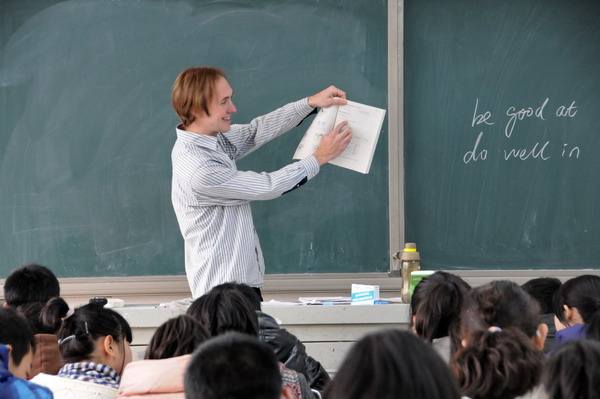 be good at
do well in